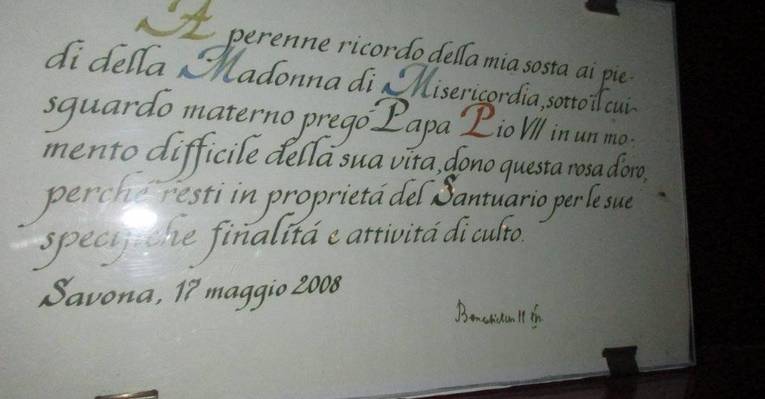 A perenne ricordo della mia sosta ai pie-
di della Madonna di Misericordia, sotto il cui-
sguardo materno pregó Papa Pio VII in un mo-
mento difficile della sua vita, dono questa rosa d'oro,
perché resti in proprietá del Santuario per le sue
specifiche finalitá e attivitá di culto.
Savona, 17 maggio 2008